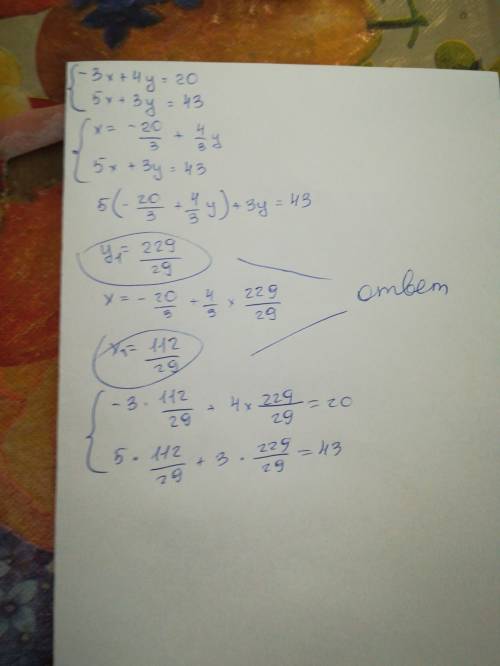 {-3x+4y=20
5x+3y=43
{x= -20/3 + 4/3 y
5x+3y=43
5(-20/3 + 4/3 y)+3y=43
y₁= 229/29
x= -20/3 + 4/3 × 229/29
ответ
x₁= 112/29
{-3 · 112/29 + 4 × 229/29 = 20
5 · 112/29 + 3 · 229/29 = 43